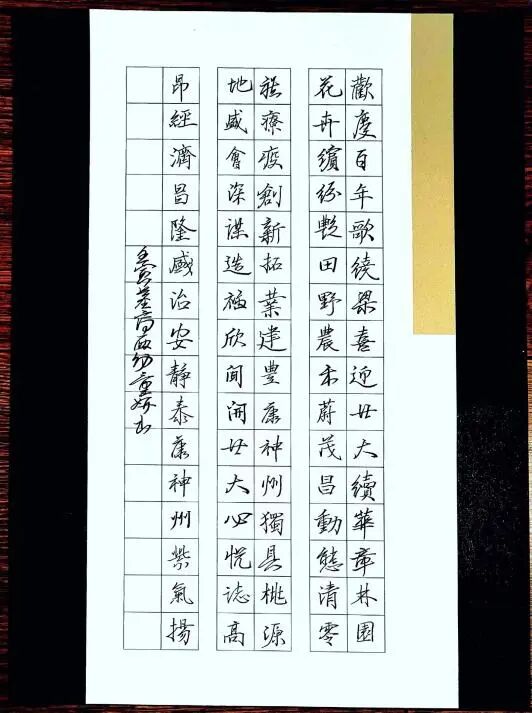 歡慶百年歌繞梁喜迎廿大續華章林園
花卉繽紛艷田野農禾蔚茂昌動態清零
施療疫創新拓業建豊康神州獨具桃源
地盛會深謀造福欣聞開廿大心悅誌高
昂經濟昌隆盛治安靜泰康神州紫氣揚